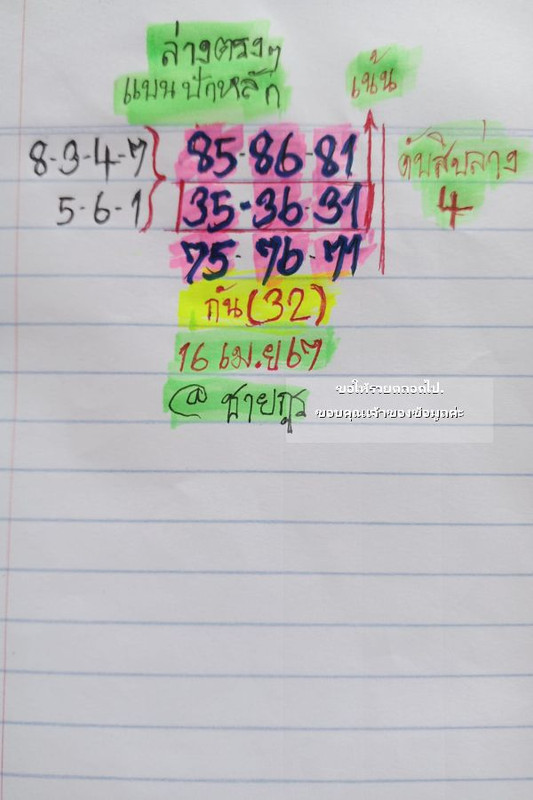 ล่างตรงๆ
แบบป้าหลัก
เน้น
8-3-4-7
5-6-1
85-86-81
35-36-31
75-76-71
ดับสิบล่าง
4
กัน(32)
16 เม.ย 67
@ ชายกูร
ขอให้รวยตลอดไป.
ขอบคุณเจ้าของข้อมูลค่ะ